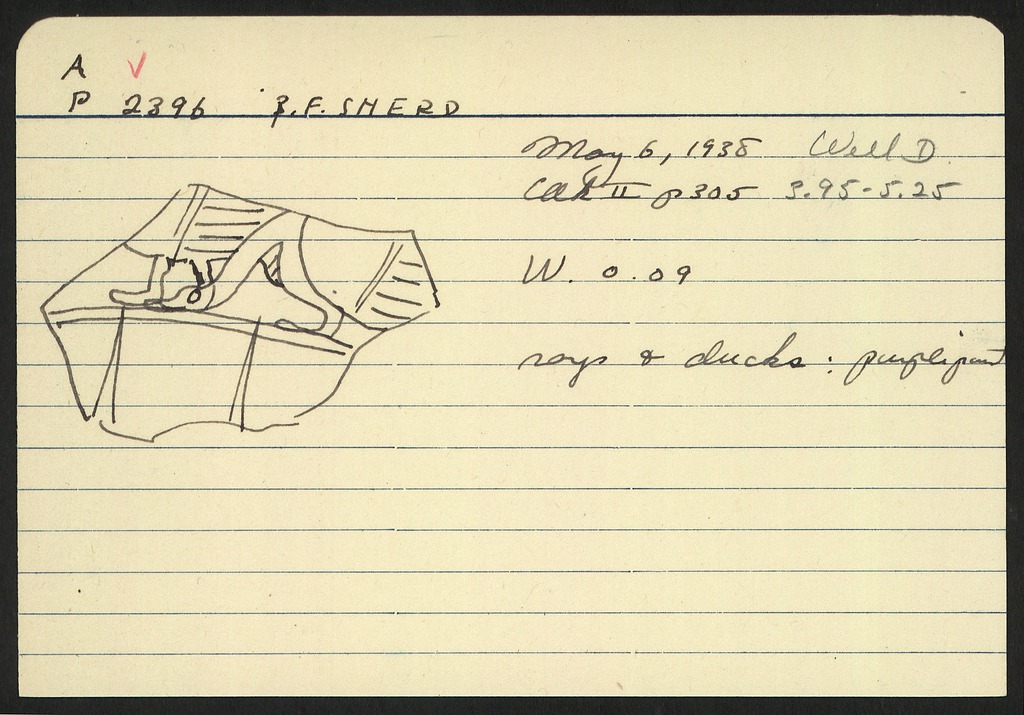 A ✓
P 2396 B.F. SHERD
May 6, 1938 Well D
Cat II p 305 3.95-5.25
W. 0.09
rays & ducks: purple paint